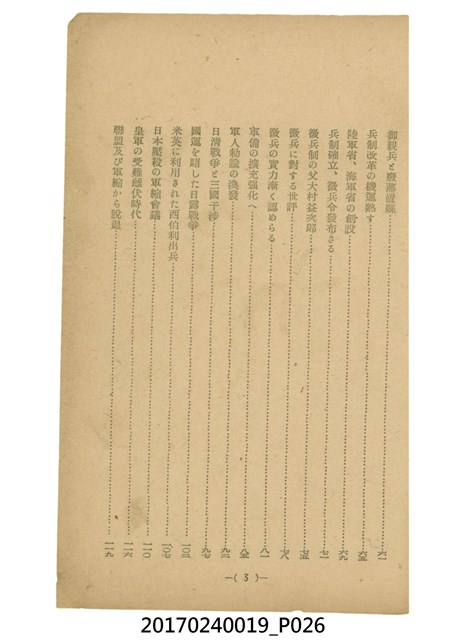 御親兵と廢藩置縣……六一
兵制改革の機運熟す……六五
陸軍省、海軍省の創設……六九
兵制確立、徴兵令發布さる……七一
徴兵制の父大村益次郎……七五
徴兵に對する世評……七八
徴兵の實力漸く認めらる……八一
軍備の擴充强化へ……八全
軍人勅諭の渙發……九三
日清戰爭と三國干渉……九七
國運を賭した日露戰爭……一〇三
米英に利用された西伯利出兵……一〇七
日本壓殺の軍縮會議……一一〇
皇軍の受難雌伏時代……一一六
聯盟及び軍縮から脫退……一一九
—( 3 )—
20170240019_P026